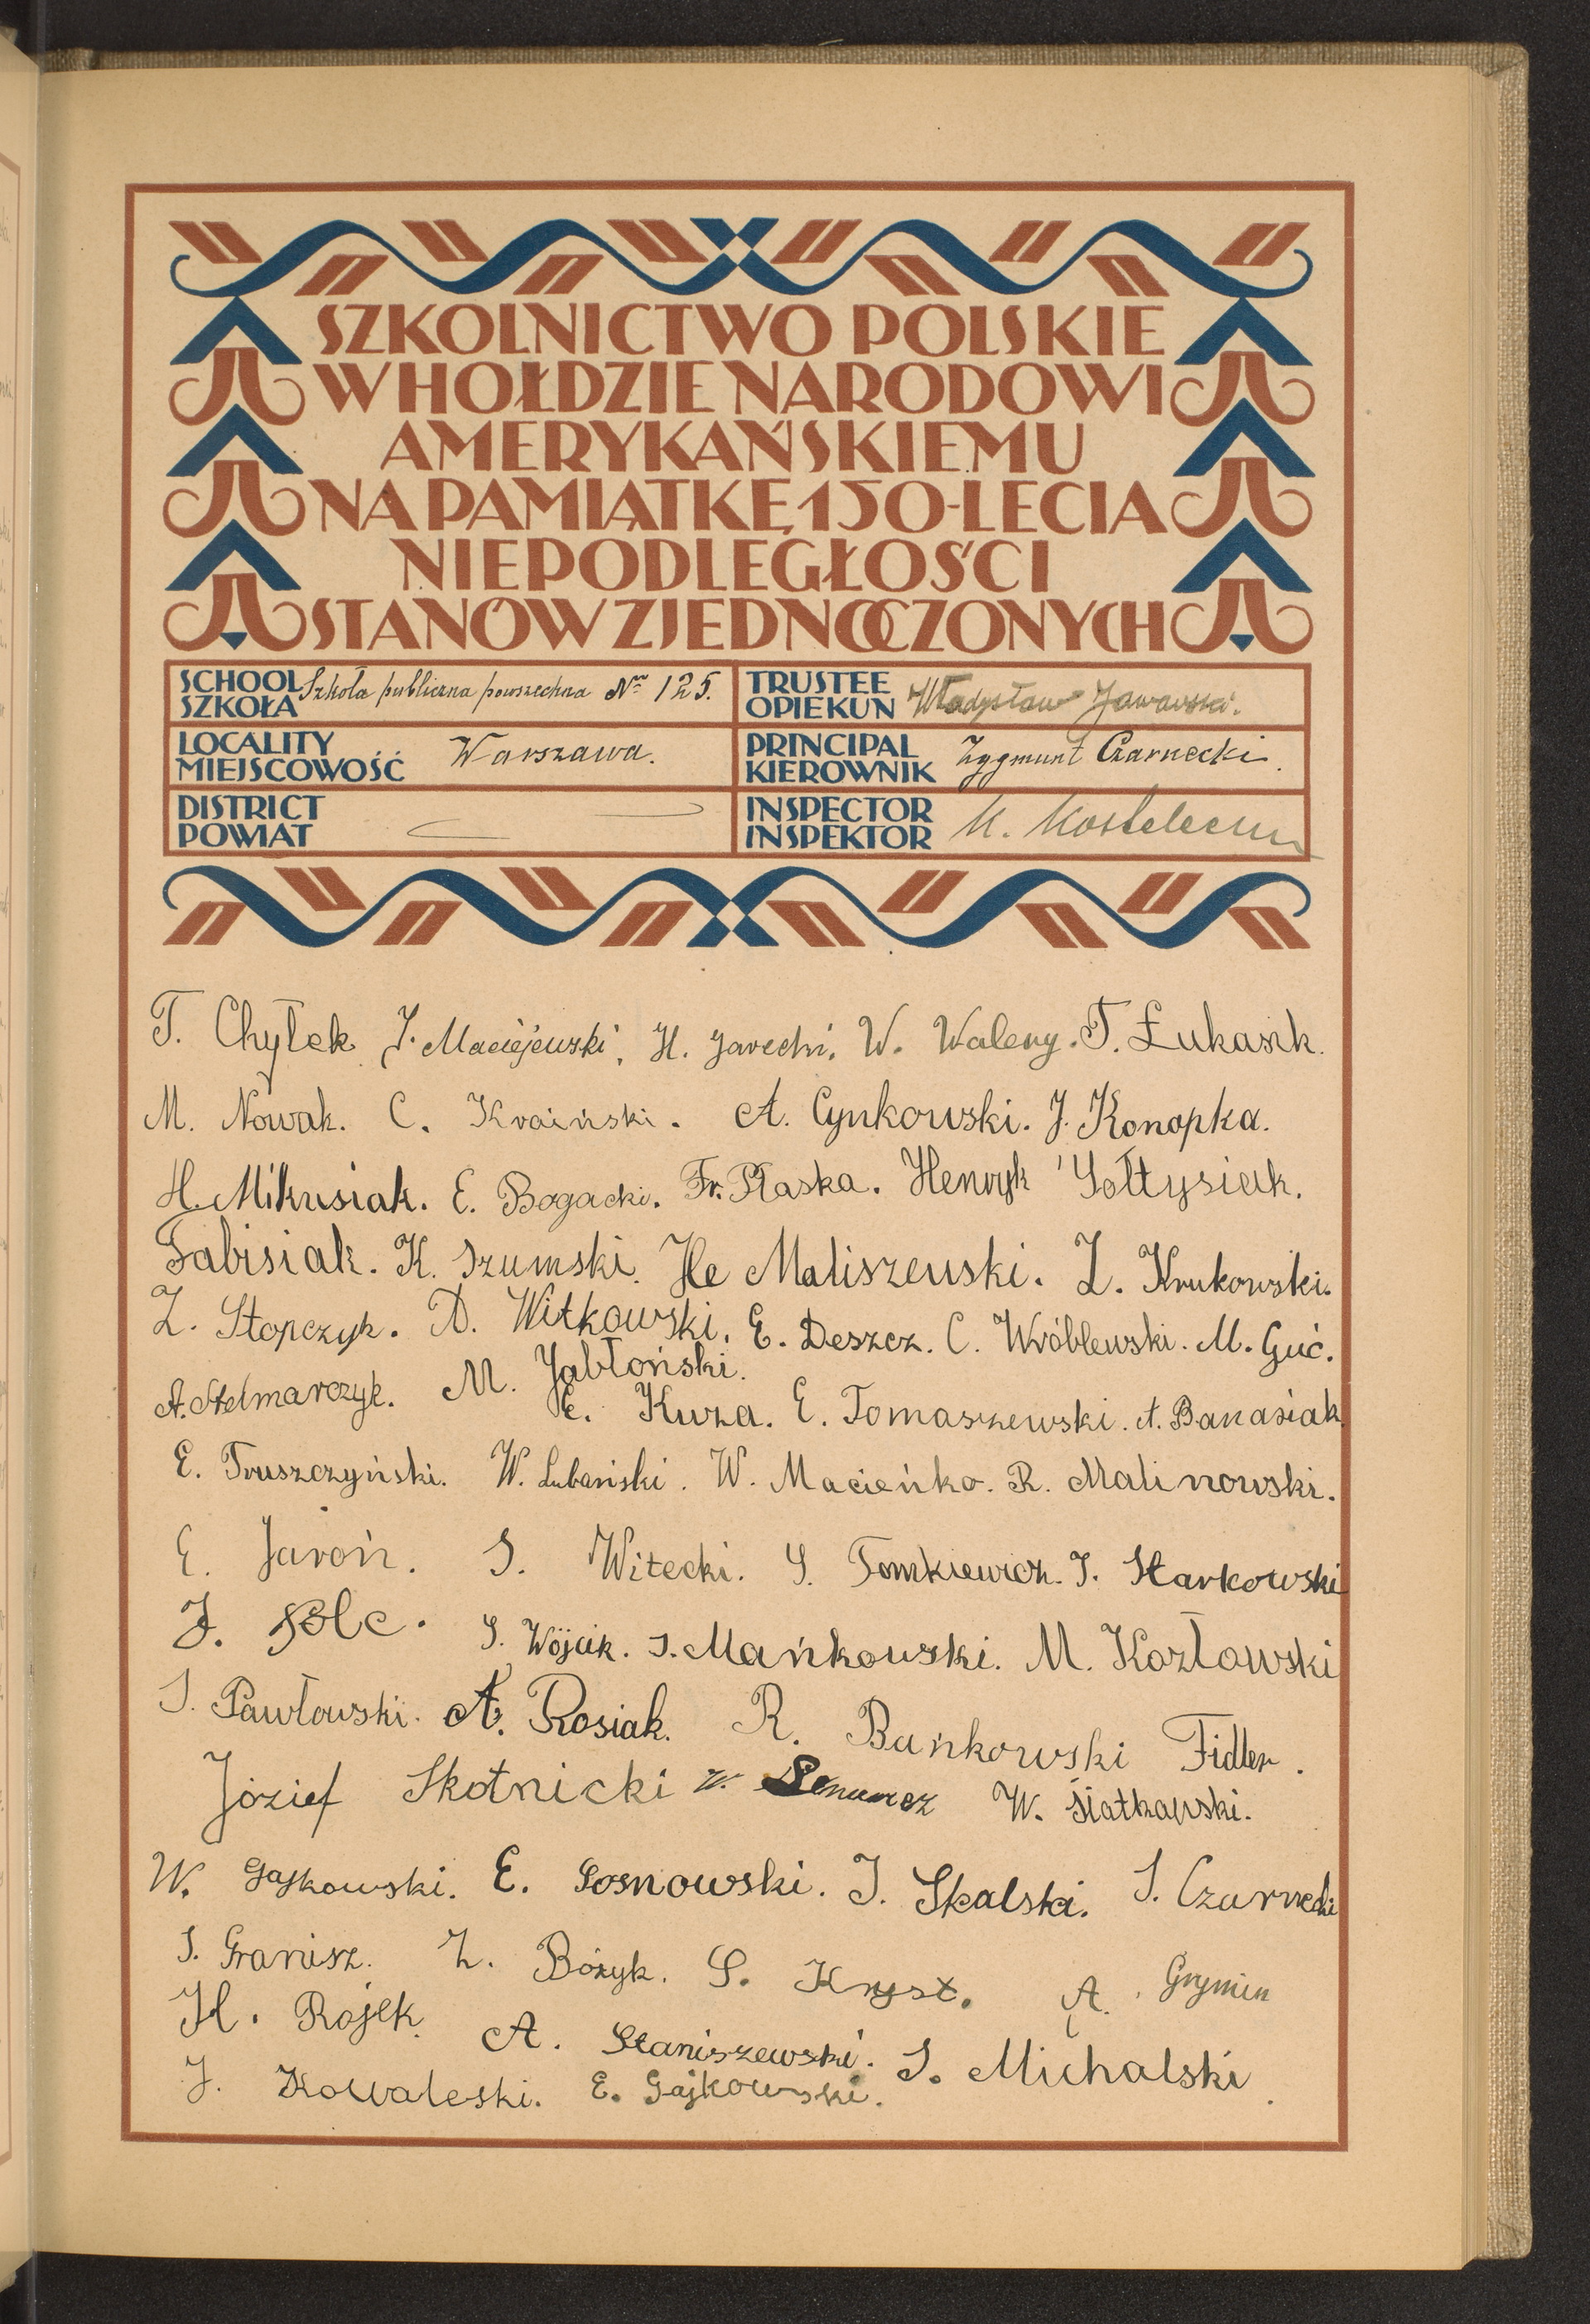 SZKOLNICTWO POLSKIE
W HOŁDZIE NARODOWI
AMERYKAŃSKIEMU
NA PAMIĄTKĘ 150-LECIA
NIEPODLEGŁOŚCI
STANÓW ZJEDNOCZONYCH
SCHOOL SZKOŁA Szkoła publiczna powszechna Nr 125.
TRUSTEE OPIEKUN Władysław Jaworski.
LOCALITY MIEJSCOWOŚĆ Warszawa.
PRINCIPAL KIEROWNIK Zygmunt Czarnecki.
DISTRICT POWIAT
INSPECTOR INSPEKTOR K.
T. Chyłek J. Maciejewski, H. Jarecki. W. Waleny. T. Łukasik.
M. Nowak. C. Kraiński. A. Cynkowski. J. Konopka.
H. Mikusiak. E. Bogacki. Fr. Płaska. Henryk Sołtysiak.
Fabisiak. K. Szumski. He Maliszewski. Z. Krukowski.
Z. Stopczyk. D. Witkowski. E. Deszcz. C. Wróblewski. M. Guć.
A. Stelmarczyk. M. Jabłoński.
E. Kuza. E. Tomaszewski. A. Banasiak
E. Truszczyński. W. Lubański. W. Macieńko. R. Malinowski.
E. Jaroń. S. Witecki. S. Tomkiewicz. J. Starkowski
J. Bolc. S. Wójcik. S. Mańkowski. M. Kozłowski
S. Pawłowski. A. Rosiak. R. Bańkowski Fidler.
Józief Skotnicki W. W. Siatkowski.
W. Gajkowski. E. Sosnowski. J. Skalski. S. Czarnecki
S. Granisz. Z. Bożyk. S. Kryst. A. Grymin
H. Rojek. A. Staniszewski. S. Michalski.
J. Kowaleski. E. Gajkowski.